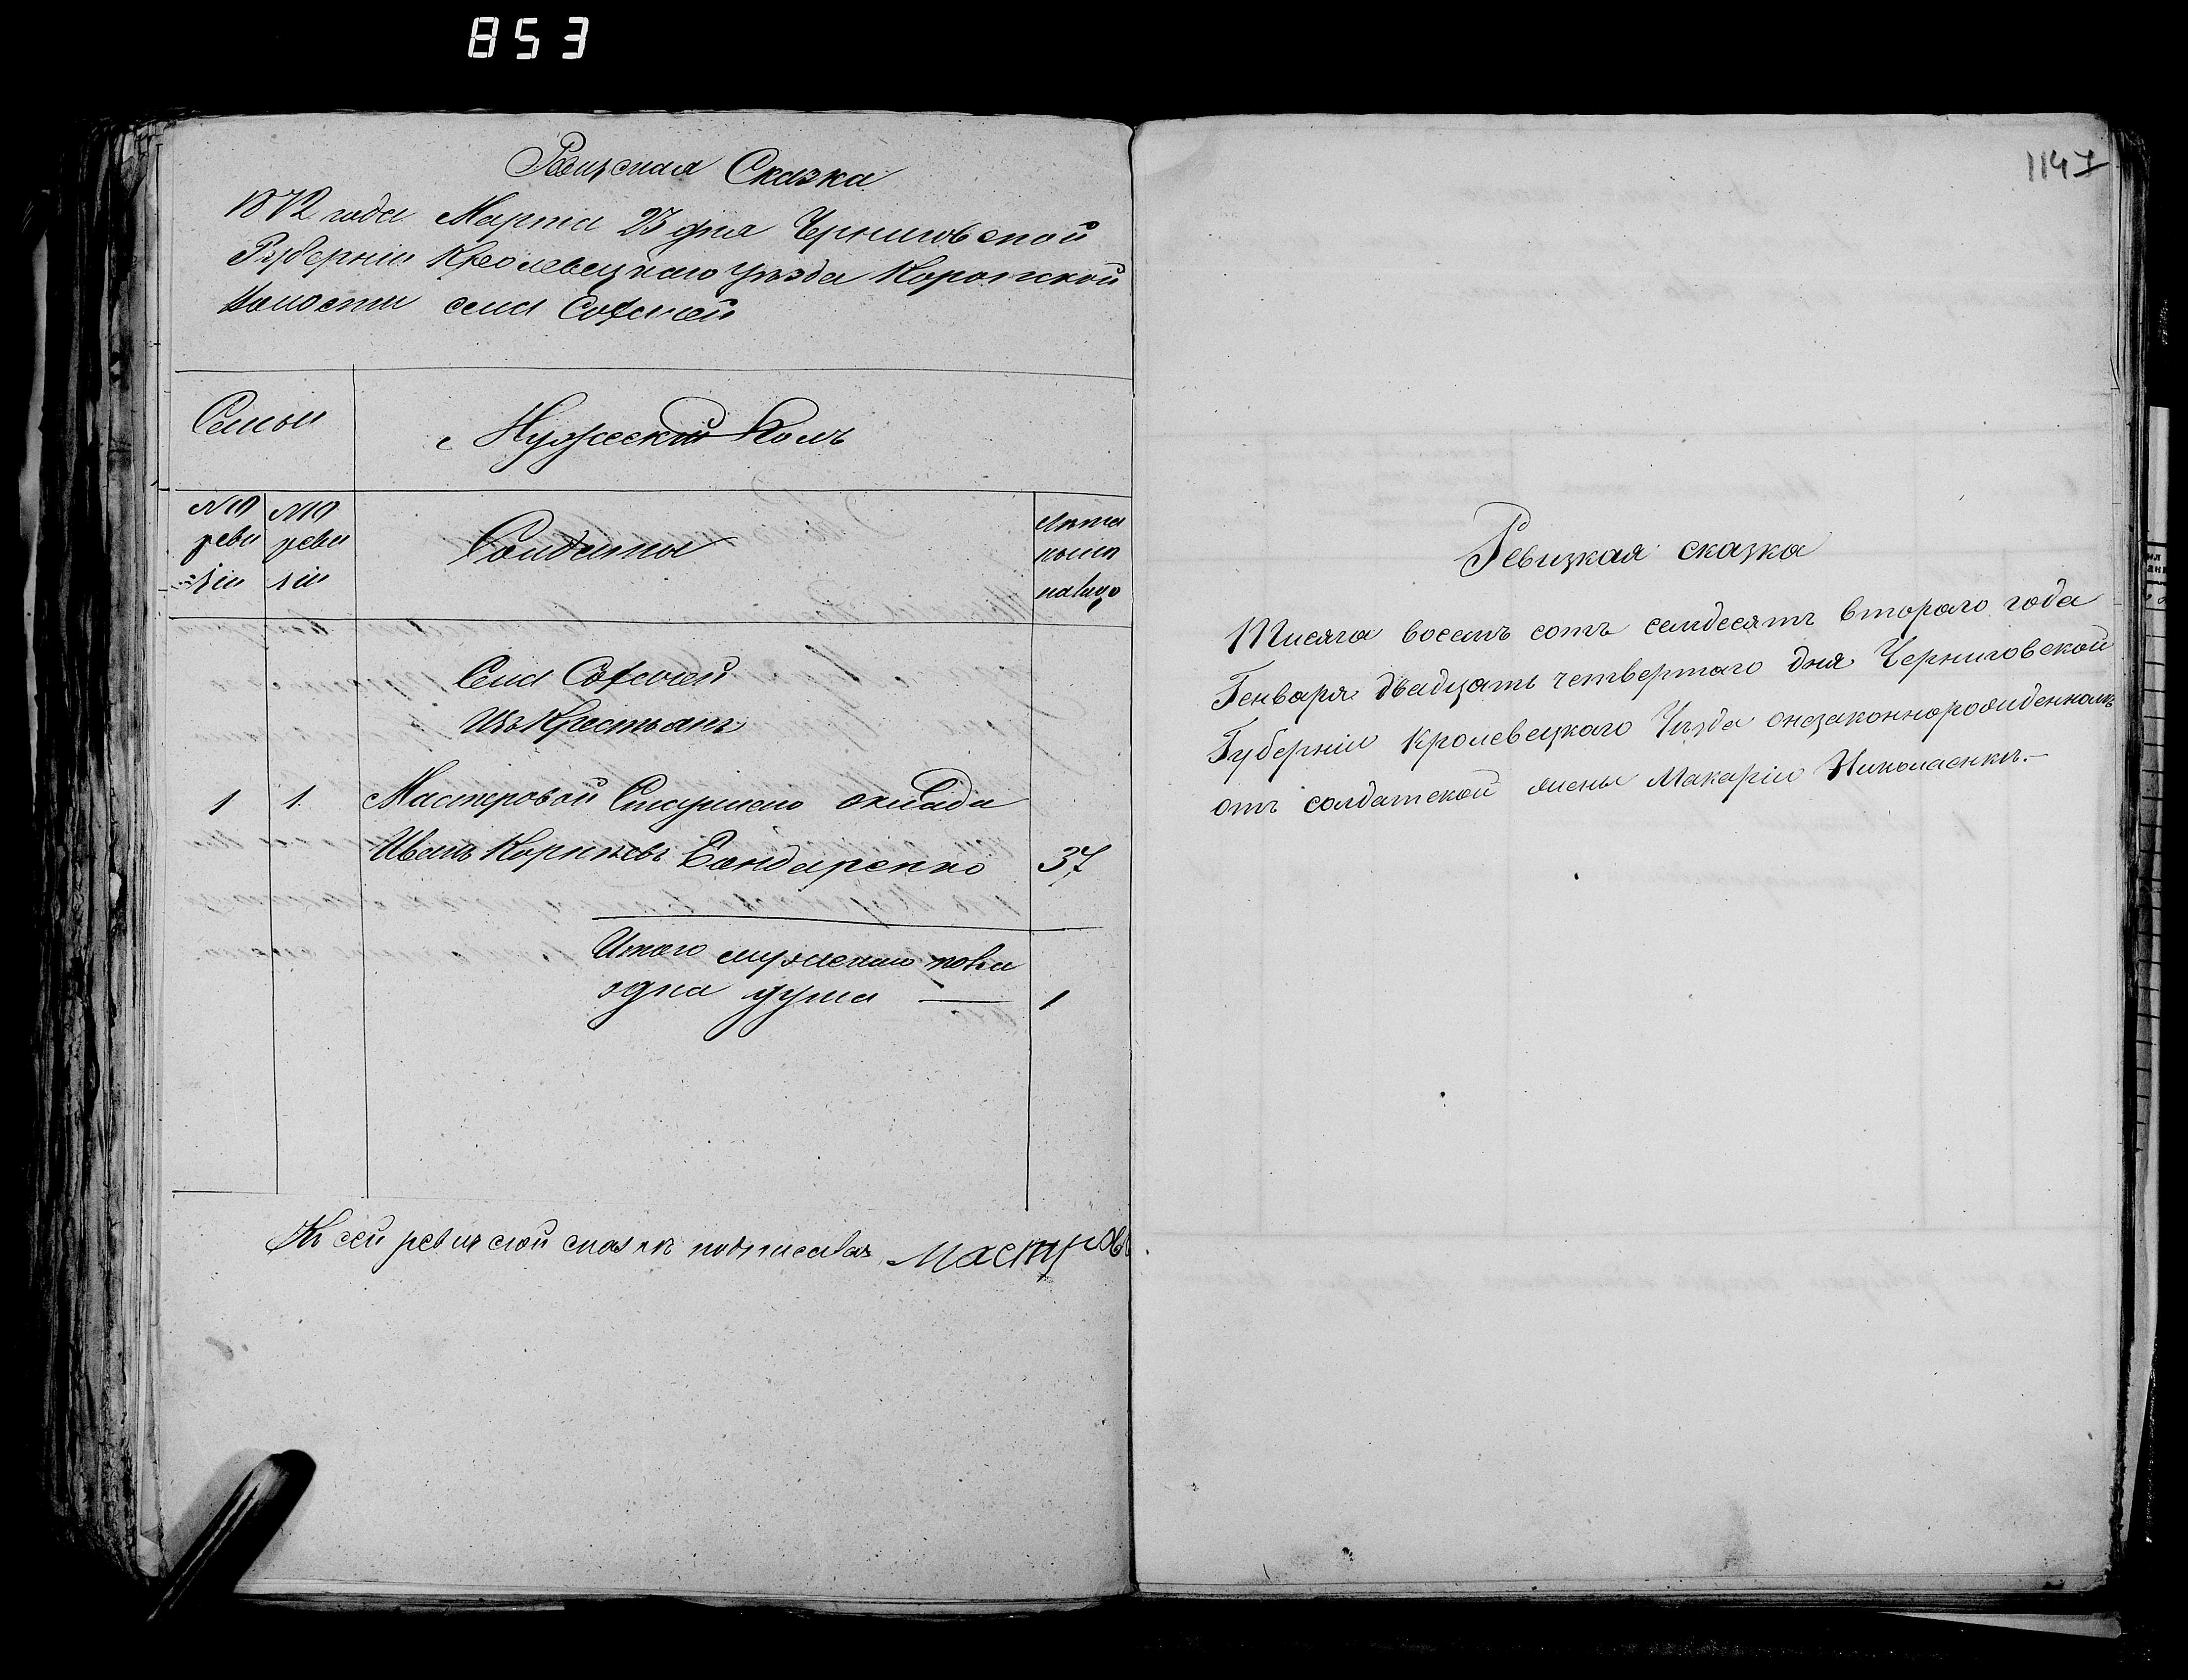 853
Ревизская Сказка
1872 года Марта 23 дня Черниговской
Губерніи Кролевецкаго уѣзда Коропской
Волости села
Семьи
Мужескій Полъ
№ № Лѣта
реви реви
зіи зіи налицо
Солдаты
Села
Изъ Крестьянъ
1 1 Мастеровой Старшего оклада
Иванъ Корнѣевъ Бондаренко 37
Итого мужескаго пола
одна душа — 1
Къ сей ревизской сказкѣ подписался
1147
Ревизкая сказка
Тисяча восемъ сотъ семдесятъ второго года
Генваря двадцать четвертаго дня Черниговской
Губерніи Кролевецкаго Уѣзда онезаконнорожиденномъ
отъ солдатской жены Макаріи Николаенкѣ.—